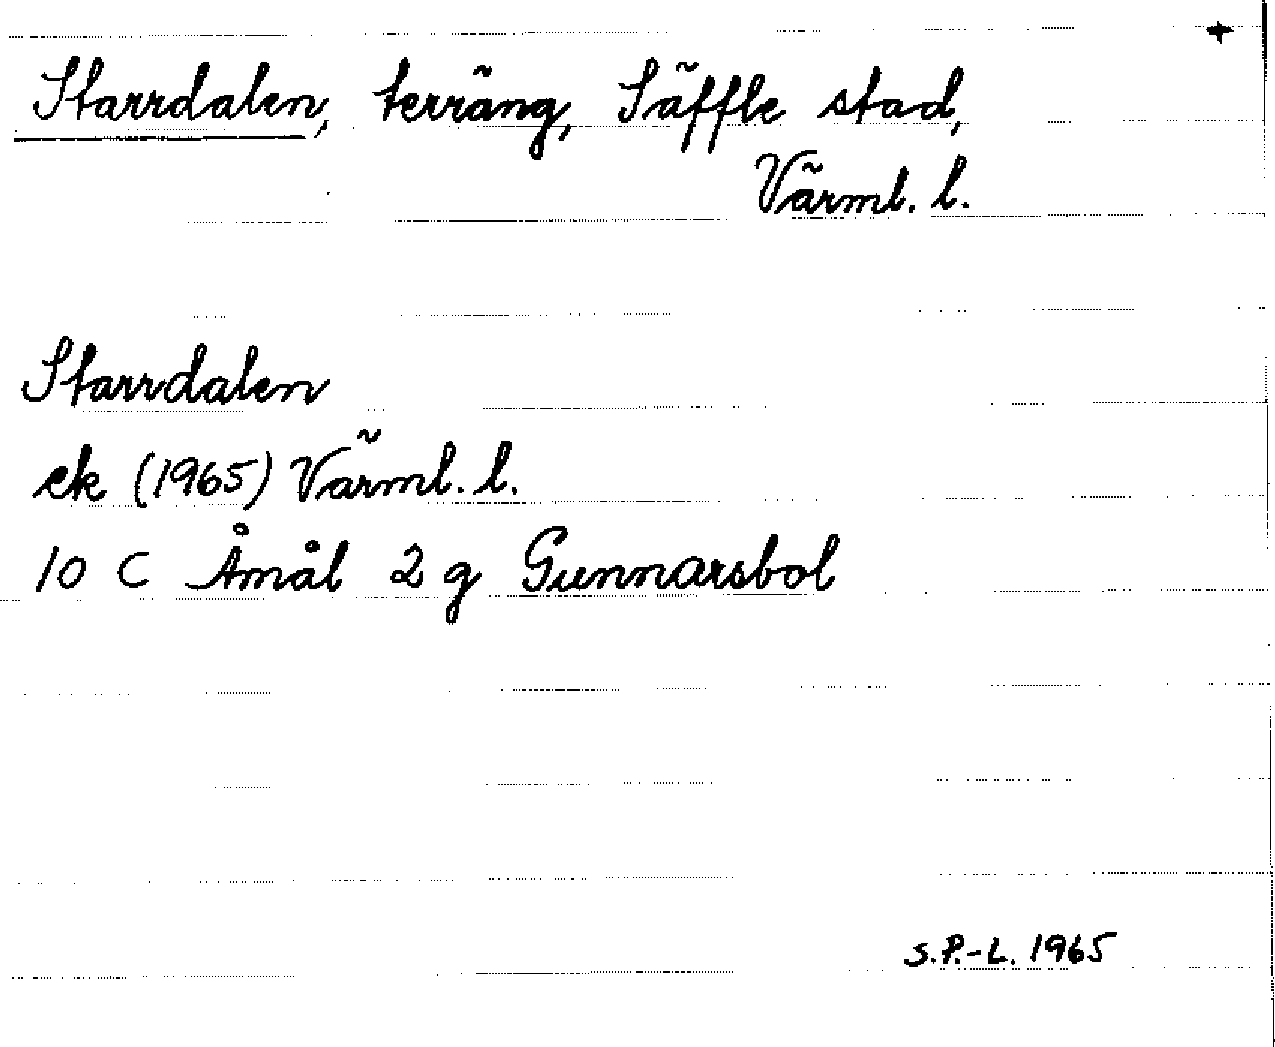 Starrdalen, terräng, Säffle stad,
Värml. l.
Starrdalen
ek (1965) Värml. l.
10 C Åmål 2 g Gunnarsbol
S.P.-L. 1965